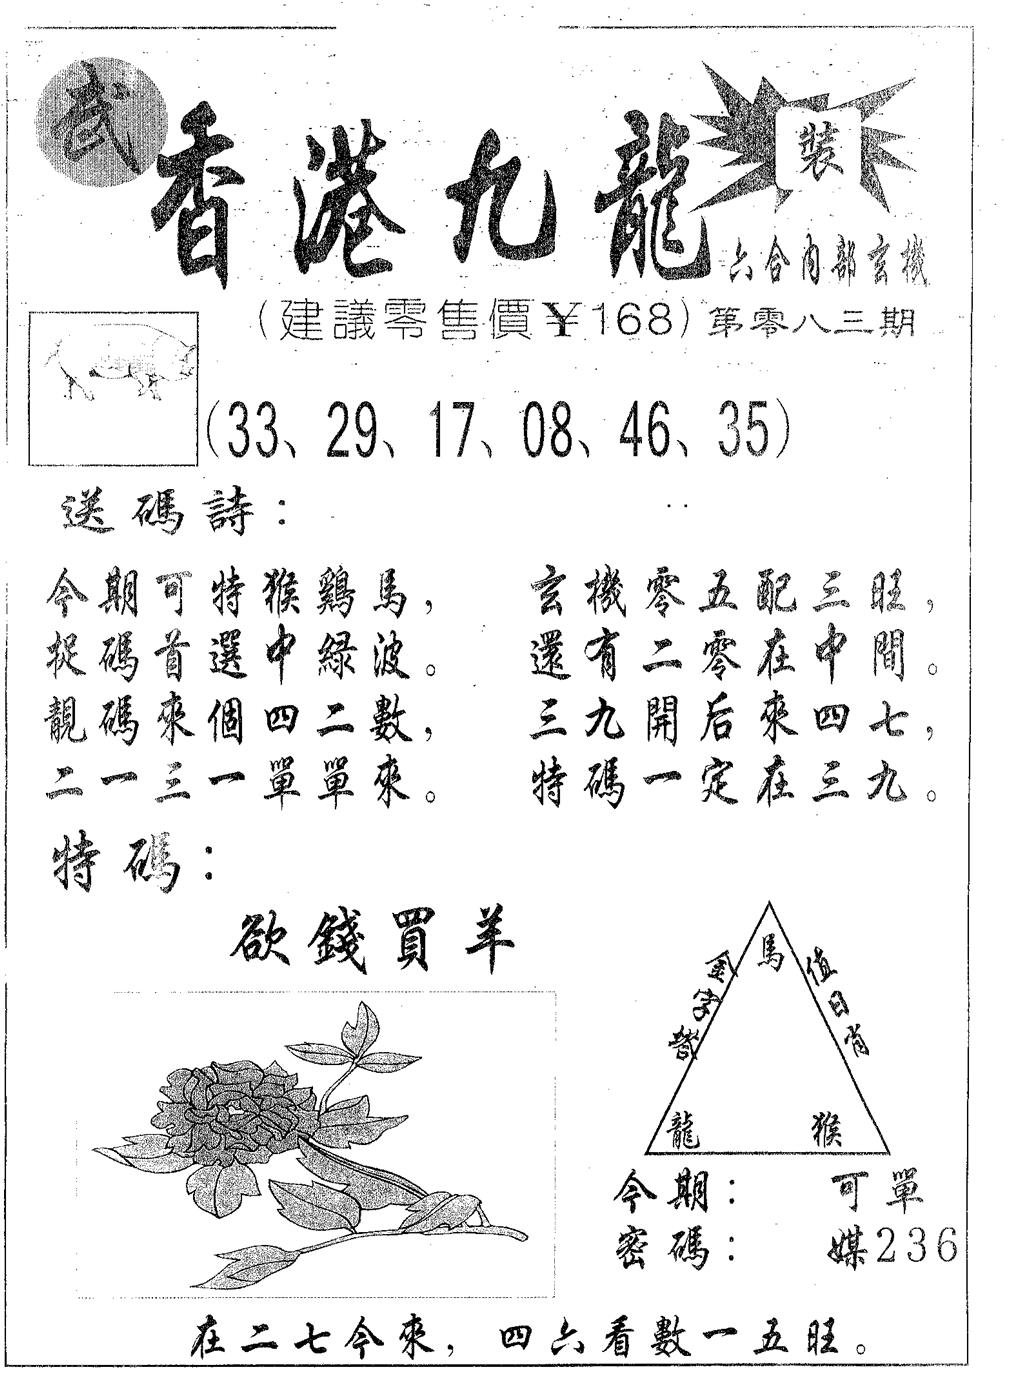 武
香港九龍
裝
六合內部玄機
(建議零售價¥168)第零八三期
(33、29、17、08、46、35)
送碼詩：
今期可特猴鷄馬，玄機零五配三旺，
捉碼首選中綠波。還有二零在中間。
靚碼來個四二數，三九開后來四七，
二一三一單單來。特碼一定在三九。
特碼：
欲錢買羊
馬
金字
值日肖
龍 猴
今期：可單
密碼：媒236
在二七今來，四六看數一五旺。